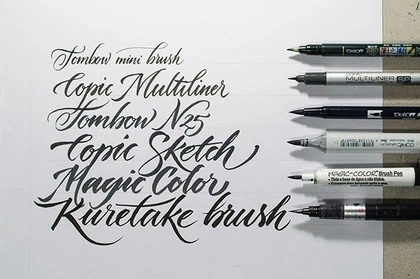 Tombow mini brush
Copic Multiliner
Tombow N25
Copic Sketch
Magic Color
Kuretake brush
TOMBOW
MULTILINER SP
TOMBOW
COPIC
MAGIC-COLOR Brush Pen